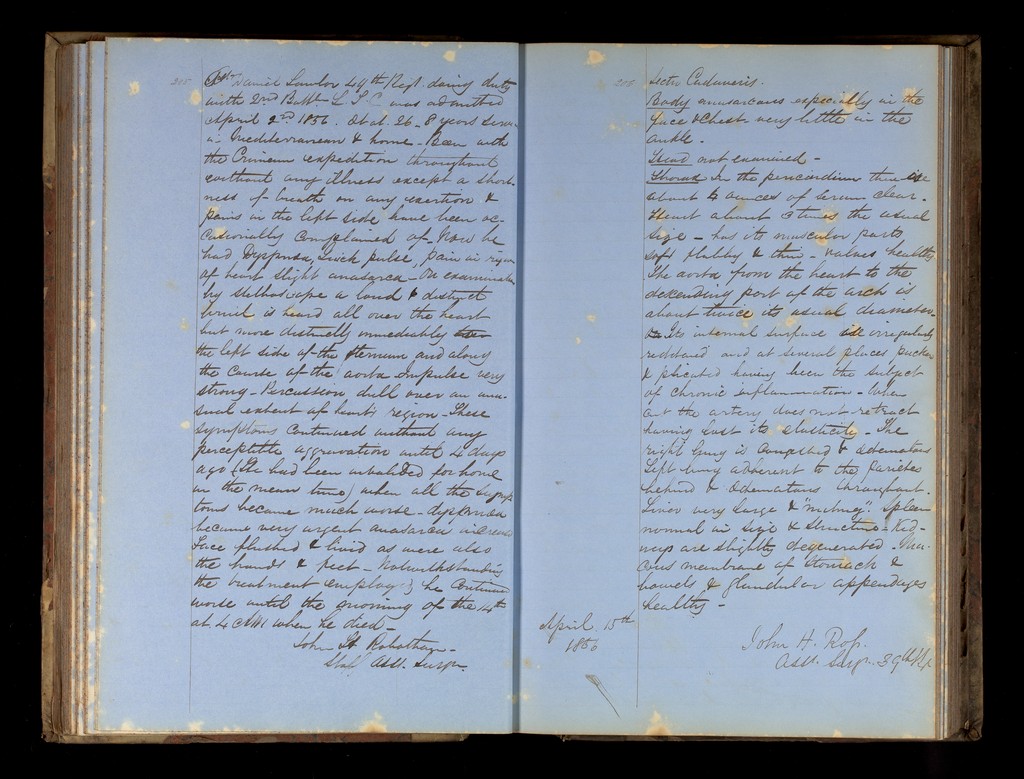 205
Pte Daniel Lawlor 49th Regt. doing duty
with 2nd Batt L.T.C. was admitted
April 2nd 1856. Ætat. 26 - 8 years Serv.
in Mediterranean & home - Been with
the Crimean expedition throughout
without any illness except a short-
ness of breath on any exertion &
pains in the left side have been oc-
casionally complained of - Now he
had Dyspnœa, quick pulse, pain in region
of heart slight anasarca - On examination
by stethoscope a loud & distinct
bruit is heard all over the heart
but more distinctly immediately
the left side of the sternum and along
the course of the aorta Impulse very
strong - Percussion dull over an unu-
sual extent of heart's region - These
symptoms continued without any
perceptible aggravation until 4 days
ago (He had been invalided for home
in the mean time) when all the symp-
toms became much worse - dyspnœa
became very urgent anasarca increased
face flushed & livid as were also
the hands & feet - Notwithstanding
the treatment employed he continued
worse until the morning of the 14th
at 4 AM when he died -
John St.
Staff Asst. Surgn.
205
Sectio Cadaveris.
Body anasarcous especially in the
face & chest very little in the
ankle -
Head not examined -
Thorax In the pericardium there
about 4 ounces of serum clear -
Heart about times the usual
size - has its muscular parts
soft flabby & thin - valves healthy
The aorta from the heart to the
decending part of the arch is
about twice its usual diameter
Its internal surface is irregularly
reddened and at several places pucker
& plicated having been the subject
of chronic inflammation - When
cut the artery does not retract
having lost its elasticity - The
right lung is congested & œdematous
Left lung adherent to the parietes
behind & œdematous throughout.
Liver very large & "nutmeg". Spleen
normal in size & structure - Kid-
neys are slightly degenerated - Mu-
cous membrane of stomach &
bowels & glandular appendages
healthy -
April 15th
1856
John H. Ross.
Asst. Surgn. 39th Rgt